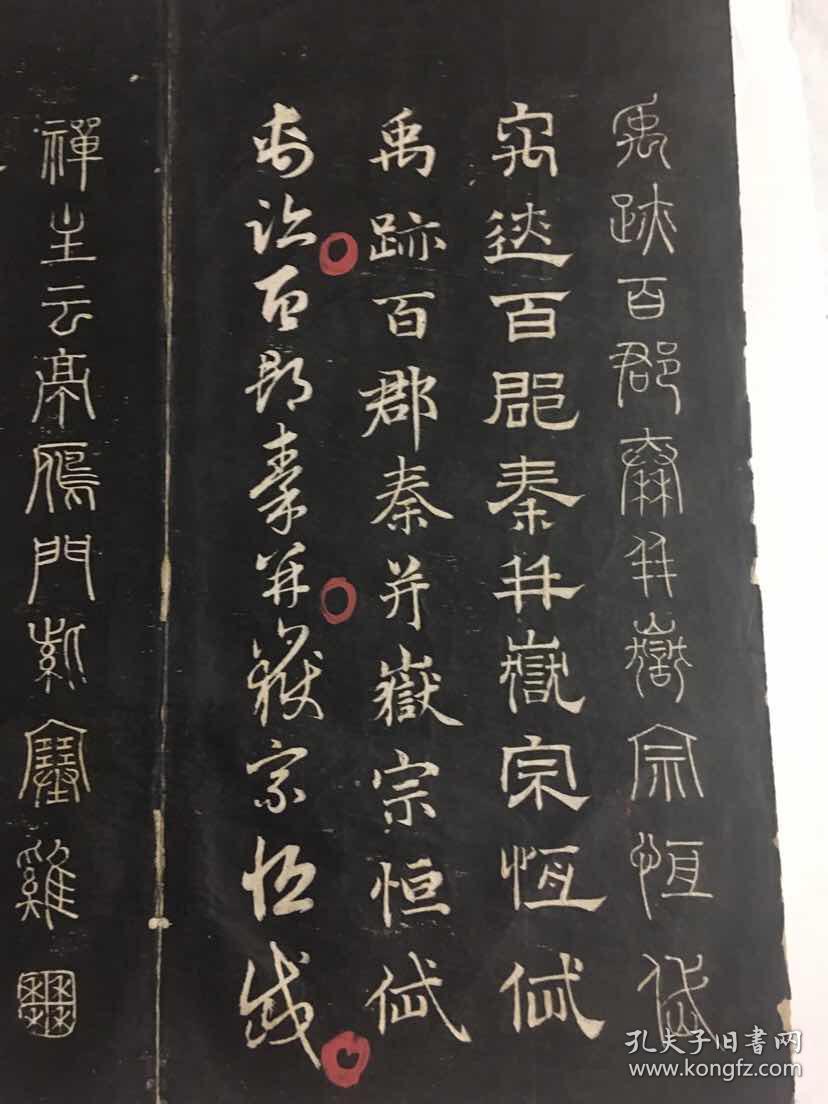 禹跡百郡秦并嶽宗恆岱
禹迹百郡秦并嶽宗恆岱
禹跡百郡秦并嶽宗恒岱
禹跡百郡秦并嶽宗恒岱
禪主云亭鴈門紫塞雞田
孔夫子旧书网
www.kongfz.com